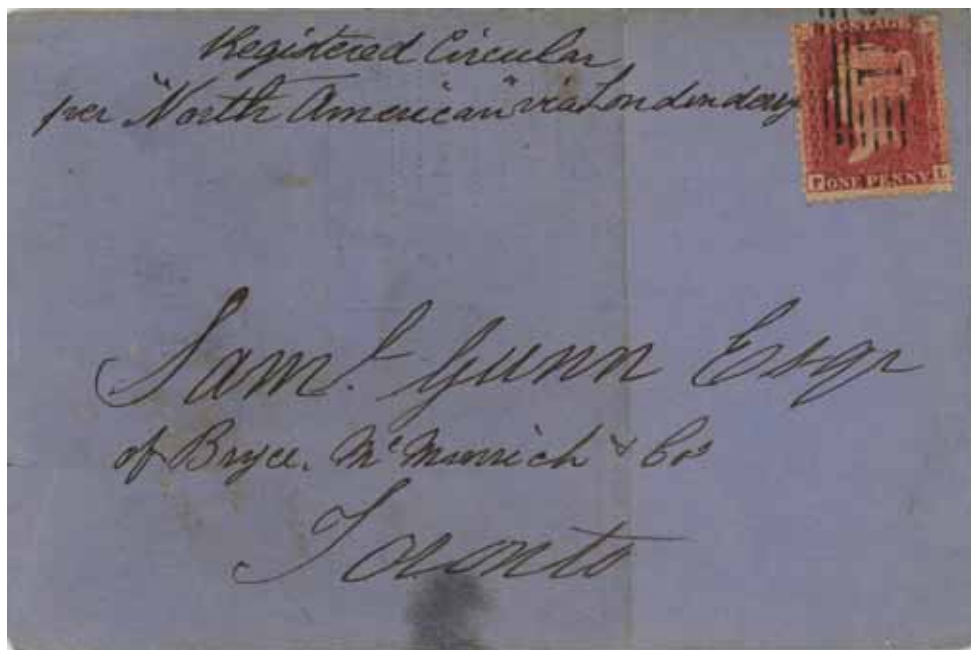 Registered Circular
per "North American" via Londonderry
POSTAGE
P ONE PENNY L
Saml. Gunn Esqr
of Bryce, McMurrich & Co
Toronto